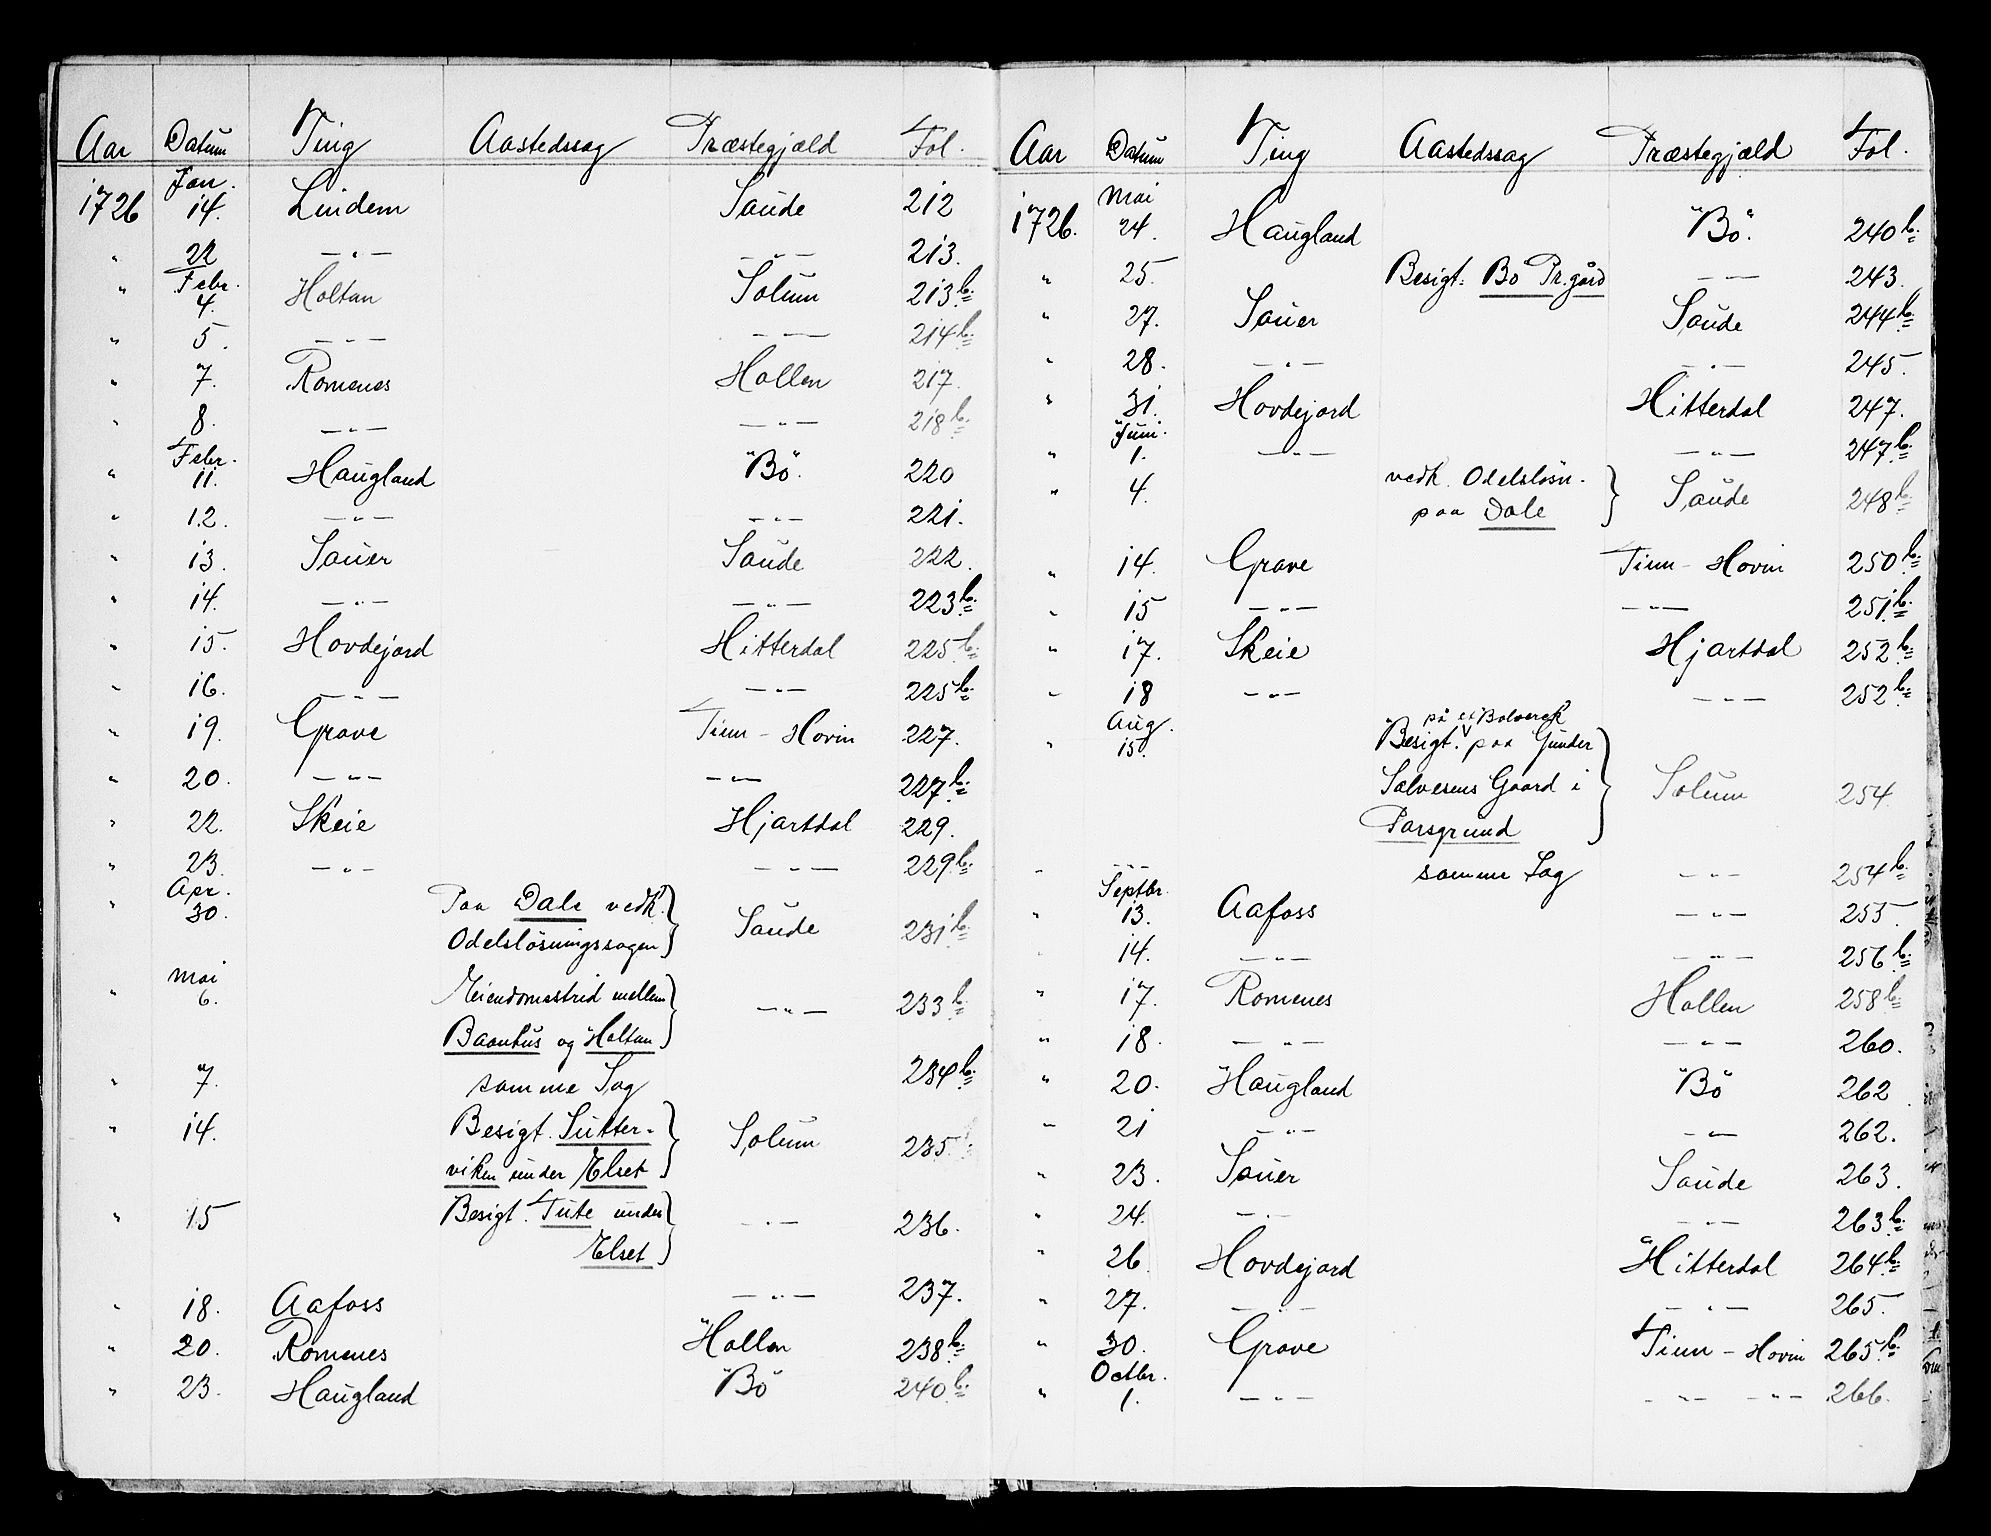 Aar Datum Ting Aastedssag Præstegjæld Fol.
Jan.
1726 14. Lindem Saude 212
" 22 — " — — " — 213.
Febr.
" 4. Holtan Solum 213 b.
" 5. — - — — - — 214 b.
" 7. Romenes Hollen 217.
" 8. — " — — " — 218 b.
Febr.
" 11. Haugland Bö. 220
" 12. — " — — " — 221.
" 13. Sauer Saude 222.
" 14. — " — — " — 223 b.
" 15. Hovdejord Hitterdal 225 b.
" 16. — " — — " — 225 b.
" 19. Grave Tinn - Hovin 227.
" 20. — " — — " — 227 b.
" 22. Skeie Hjartdal 229.
" 23. — " — — - — 229 b.
Apr.
" 30. Paa Dale vedk. Saude 231 b.
Odelslösningssagen
Mai
" 6. Eiendomsstrid mellem — " — 233 b.
Baanhus og Holtan
" 7. samme Sag 234 b.
" 14. Besigt. Sutter- Solum 235
viken under Elset
" 15 Besigt. Tute under — - — 236.
Elset
" 18. Aafoss — " — 237.
" 20. Romenes Hollen 238 b.
" 23. Haugland Bö 240 b.
Aar Datum Ting Aastedssag Præstegjæld Fol.
Mai
1726. 24. Haugland Bö. 240 b.
" 25. Besigt: Bo Pr.gård — — 243.
" 27. Sauer Saude 244 b.
" 28. — " — — " — 245.
" 31. Hovdejord Hitterdal 247.
Juni.
" 1. — " — — " — 247 b.
" 4. vedk. Odelslösn. Saude 248 b.
paa Dale
" 14. Grave Tinn - Hovin 250 b.
" 15 — " — — " — 251 b.
" 17. Skeie Hjartdal 252 b.
" 18 — " — — - — 252 b.
Aug.
på et Bolverk
" 15. Besigt. paa Gunder
Salvesens Gaard i Solum 254
Porsgrund
" - - - samme Sag — - — 254 b.
Septbr.
" 13. Aafoss — - — 255.
14. — " — — " — 256 b.
" 17. Romenes Hollen 258 b.
" 18. — " — — " — 260.
" 20. Haugland Bö 262
" 21 — " — — " — 262.
" 23. Sauer Saude 263.
" 24. — " — — " — 263 b.
" 26 Hovdejord Hitterdal 264 b.
" 27. — " — — " — 265.
" 30. Grave Tinn - Hovin 265 b.
Octbr.
" 1. — " — — " — — " — 266.